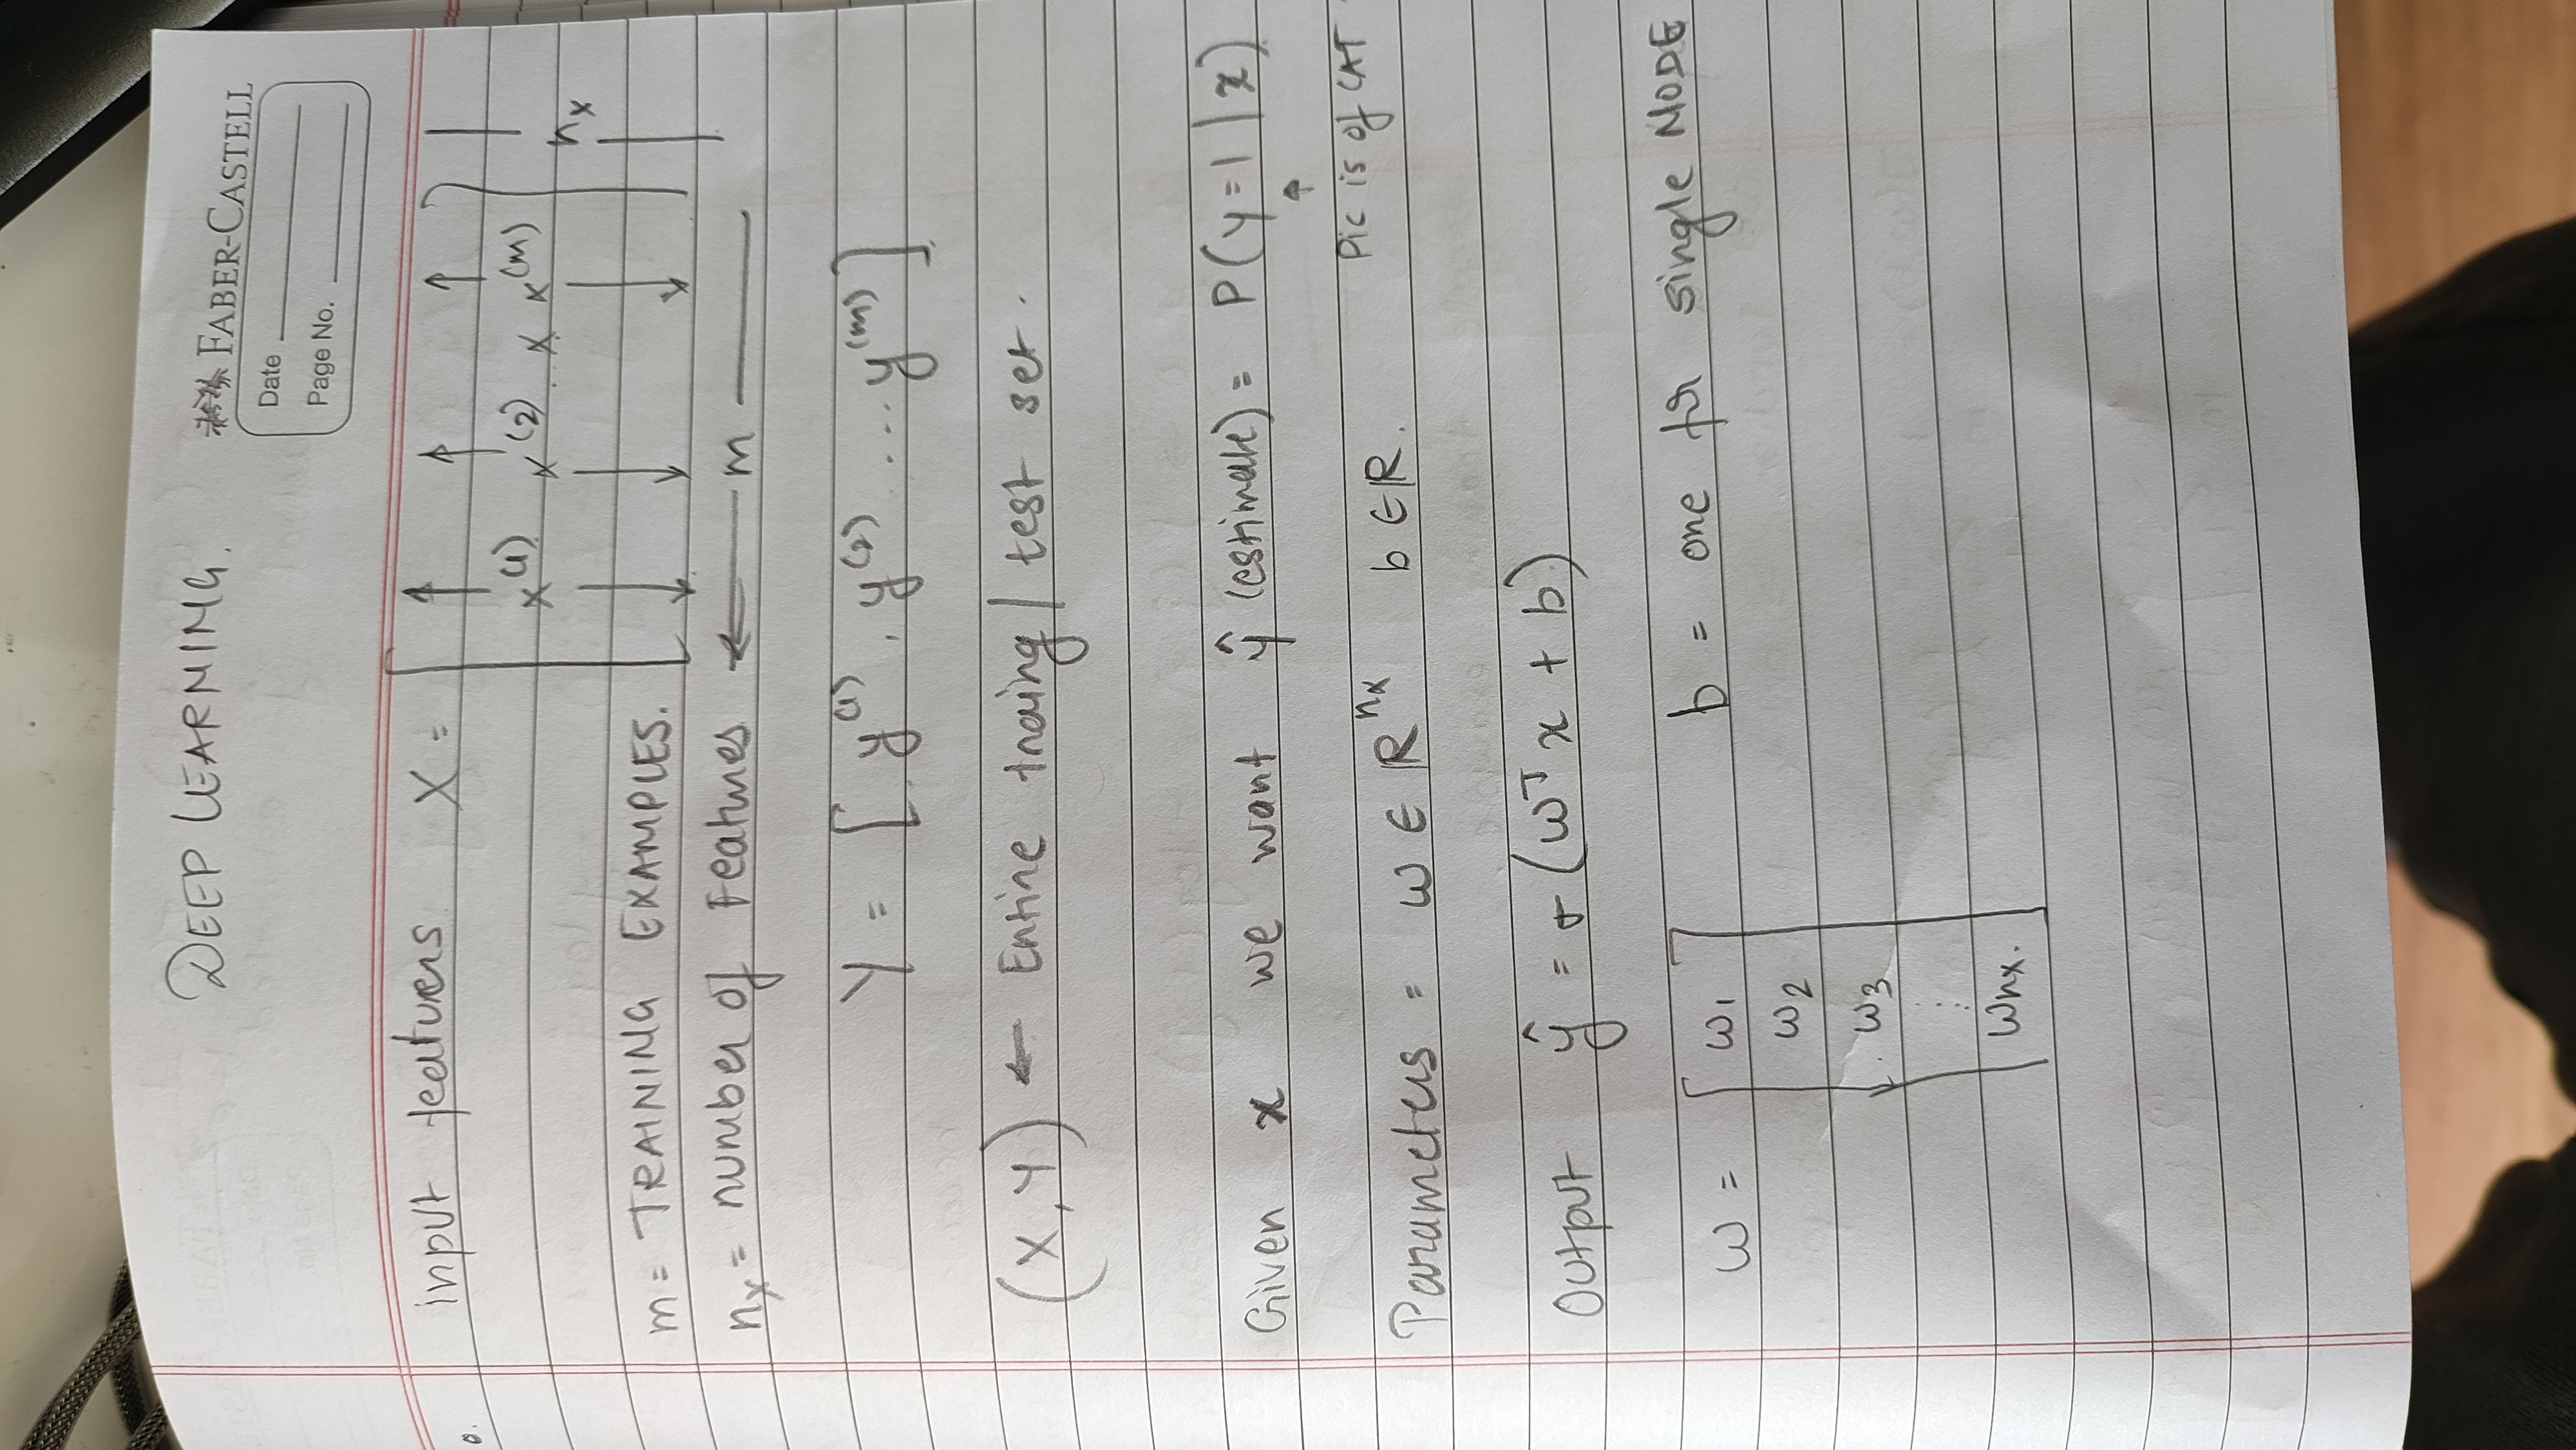 DEEP LEARNING.
FABER-CASTELL
Date
Page No.
input featuers X = [ x^(1) x^(2) x x^(m) ] n_x
m = TRAINING EXAMPLES.
n_x = number of Features ← m
Y = [ y^(1), y^(2) ... y^(m) ]
(X, Y) ← Entire traing / test set.
Given x we want ŷ (estimate) = P(y=1 | x)
↑
Pic is of CAT
Parameters = ω ∈ R^n_x b ∈ R.
Output ŷ = σ (ω^T x + b)
ω = [ ω1 b = one for single NODE
ω2
ω3
⋮
ωnx. ]